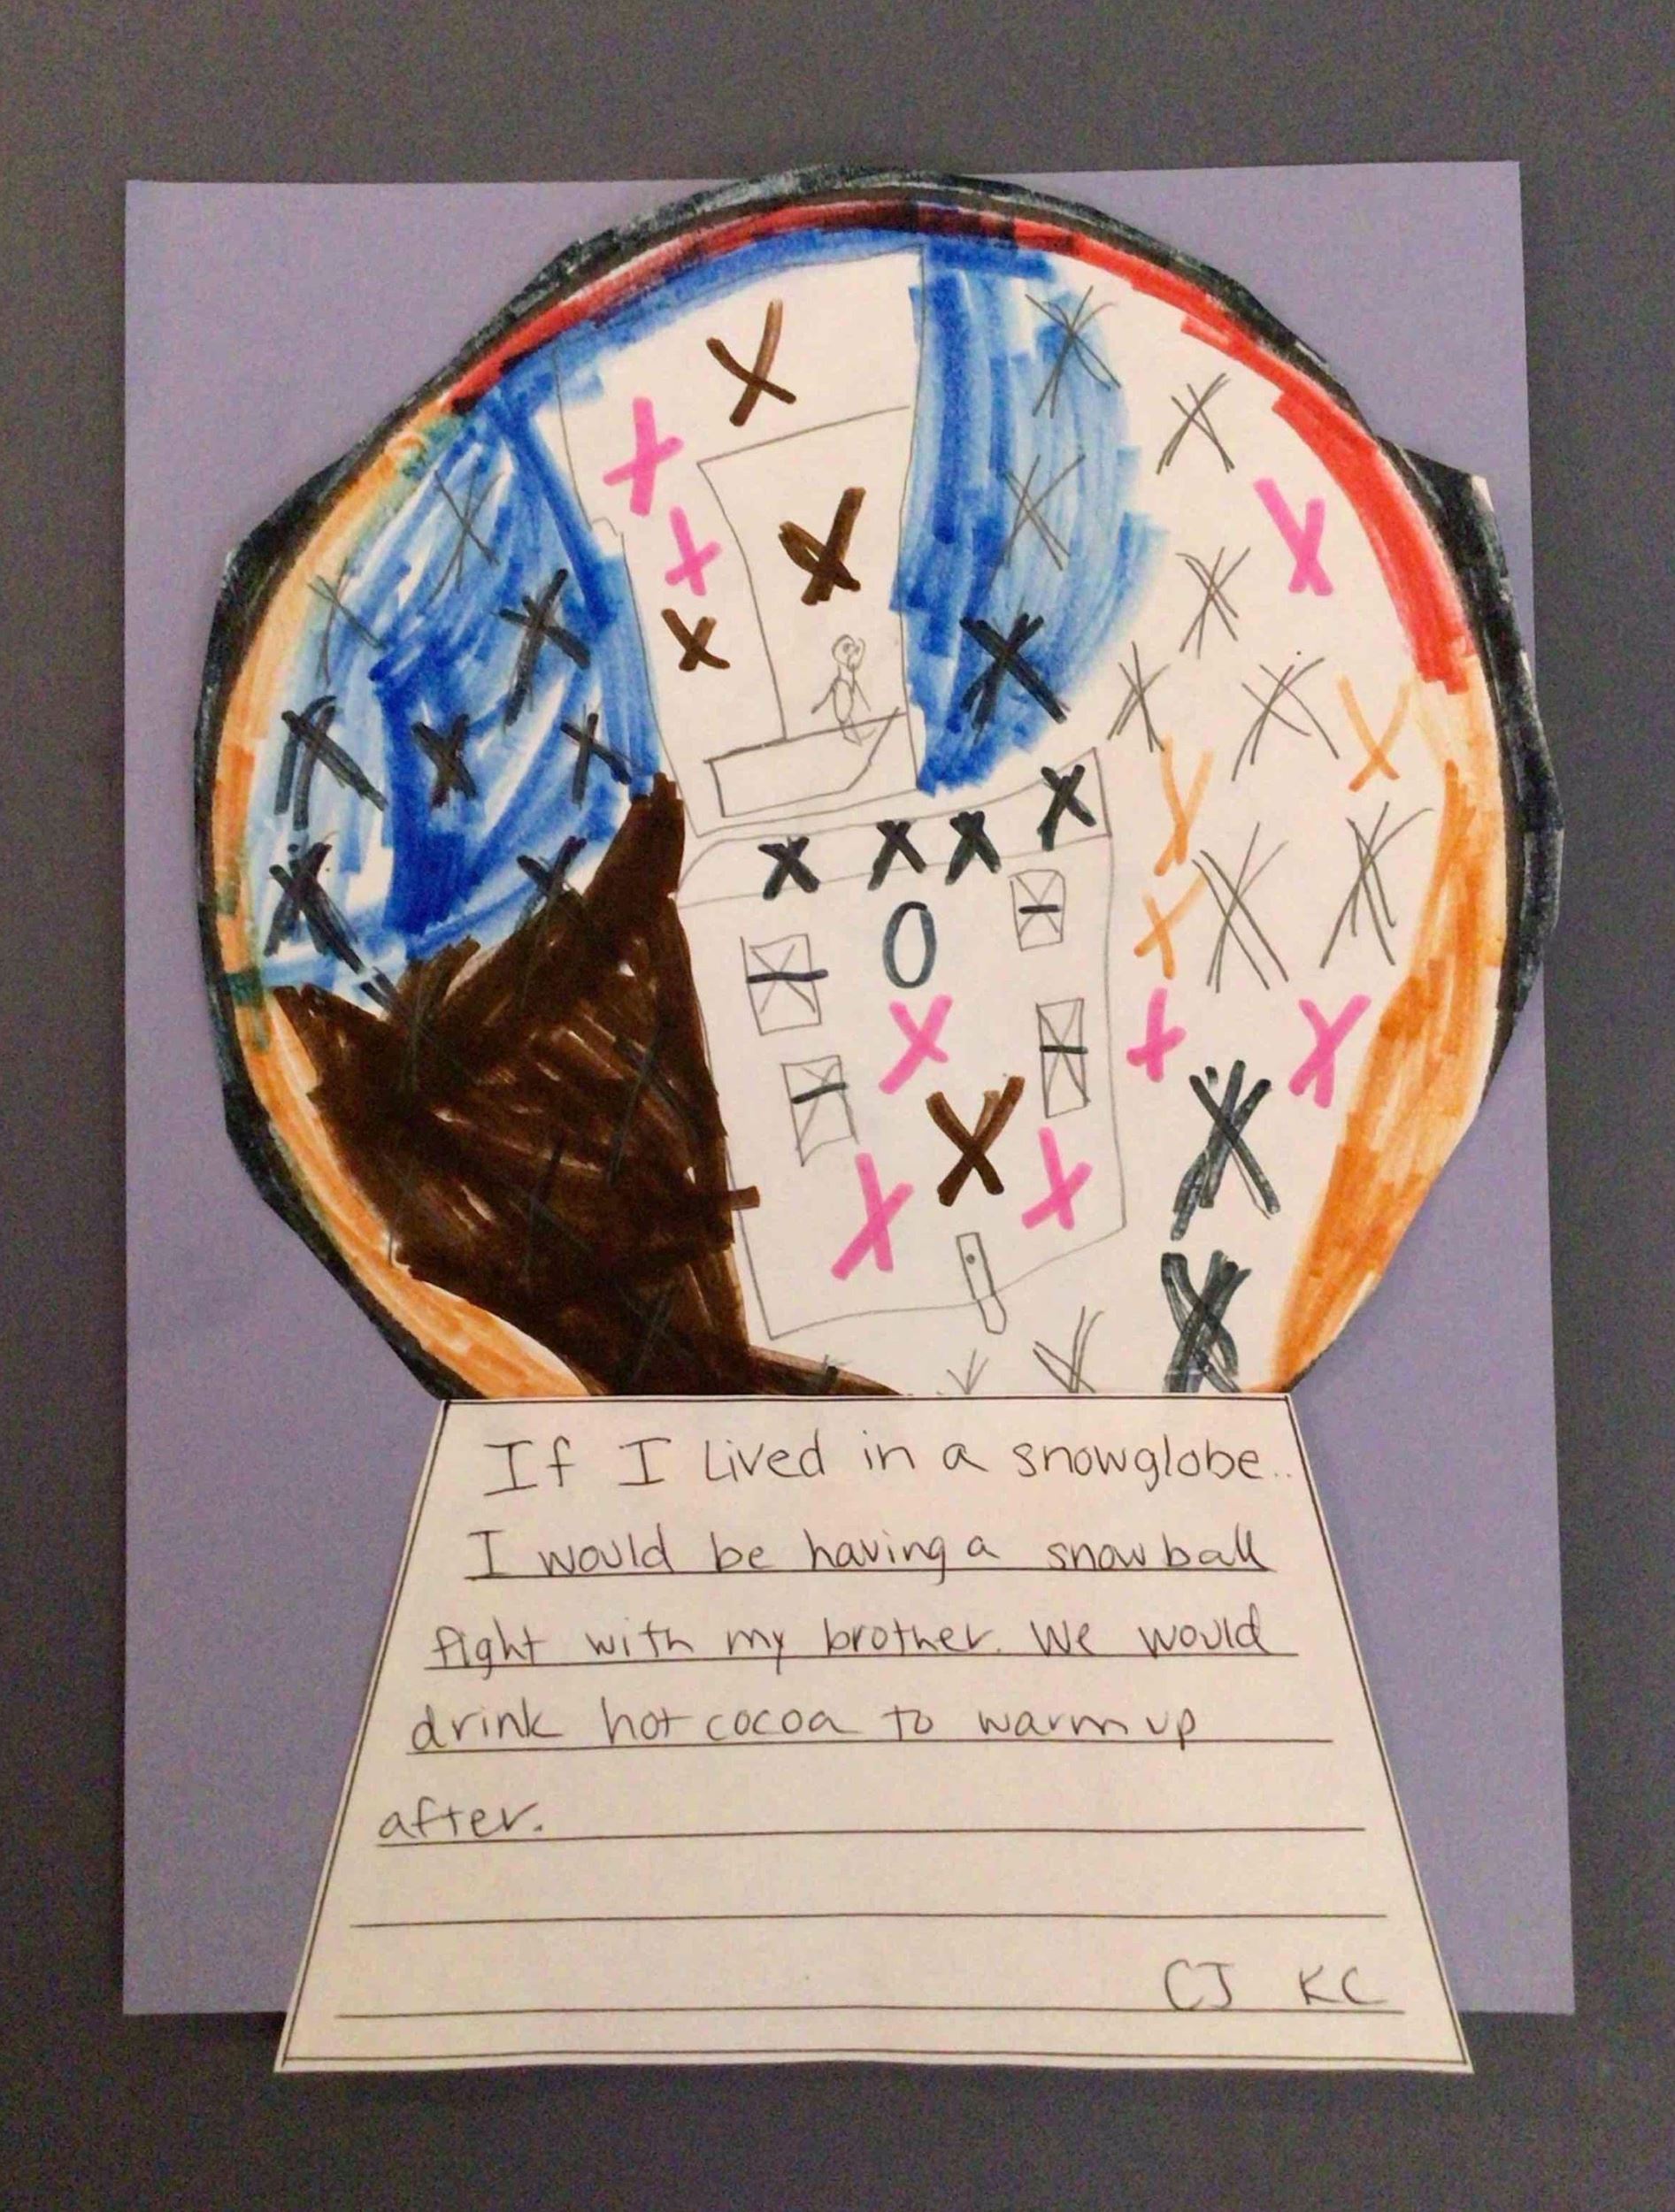 If I Lived in a snowglobe..
I would be having a snowball
fight with my brother. We would
drink hot cocoa to warm up
after.
CJ KC